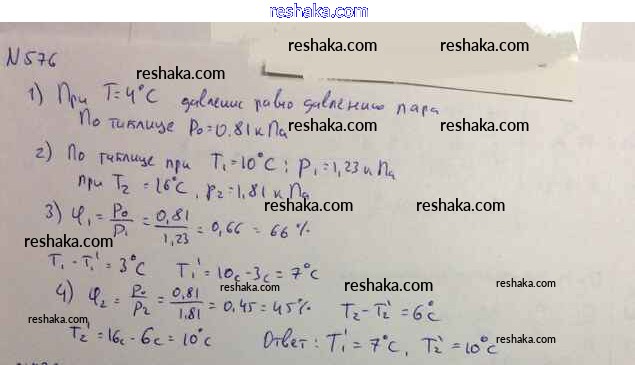 reshaka.com
N576
reshaka.com reshaka.com
reshaka.com
1) При T=4°C давление равно давлению пара
По таблице P₀=0,81кПа reshaka.com
reshaka.com
2) По таблице при T₁=10°C; P₁=1,23кПа
при T₂=16°C, P₂=1,81кПа
reshaka.com
3) φ₁=P₀/P₁=0,81/1,23=0,66=66% reshaka.com reshaka.com
reshaka.com
T₁-T₁'=3°C T₁'=10c-3c=7°C
4) φ₂=P₀/P₂=0,81/1,81=0,45=45% T₂-T₂'=6°C
reshaka.com reshaka.com
reshaka.com
T₂'=16c-6c=10°C Ответ: T₁'=7°C, T₂'=10°C
reshaka.com
reshaka.com reshaka.com